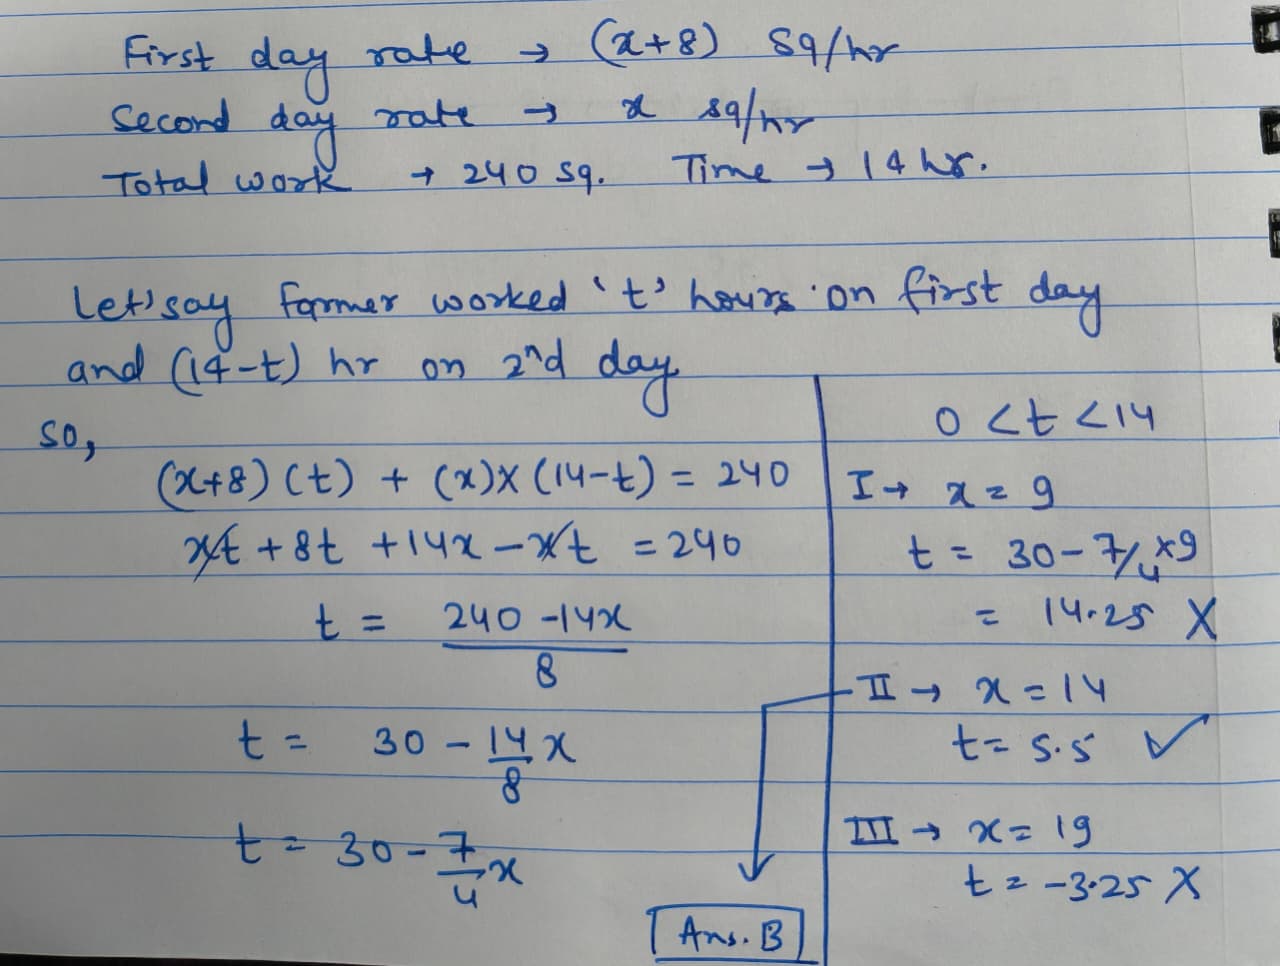 First day rate → (x+8) sq/hr
Second day rate → x sq/hr
Total work → 240 sq. Time → 14 hr.
Let's say farmer worked 't' hours on first day
and (14-t) hr on 2nd day
so,
(x+8)(t) + (x)x(14-t) = 240
xt + 8t + 14x - xt = 240
t = 240 - 14x
8
t = 30 - 14/8 x
t = 30 - 7/4 x
0 < t < 14
I → x = 9
t = 30 - 7/4 x9
= 14.25 X
II → x = 14
t = 5.5 ✓
III → x = 19
t = -3.25 X
Ans. B